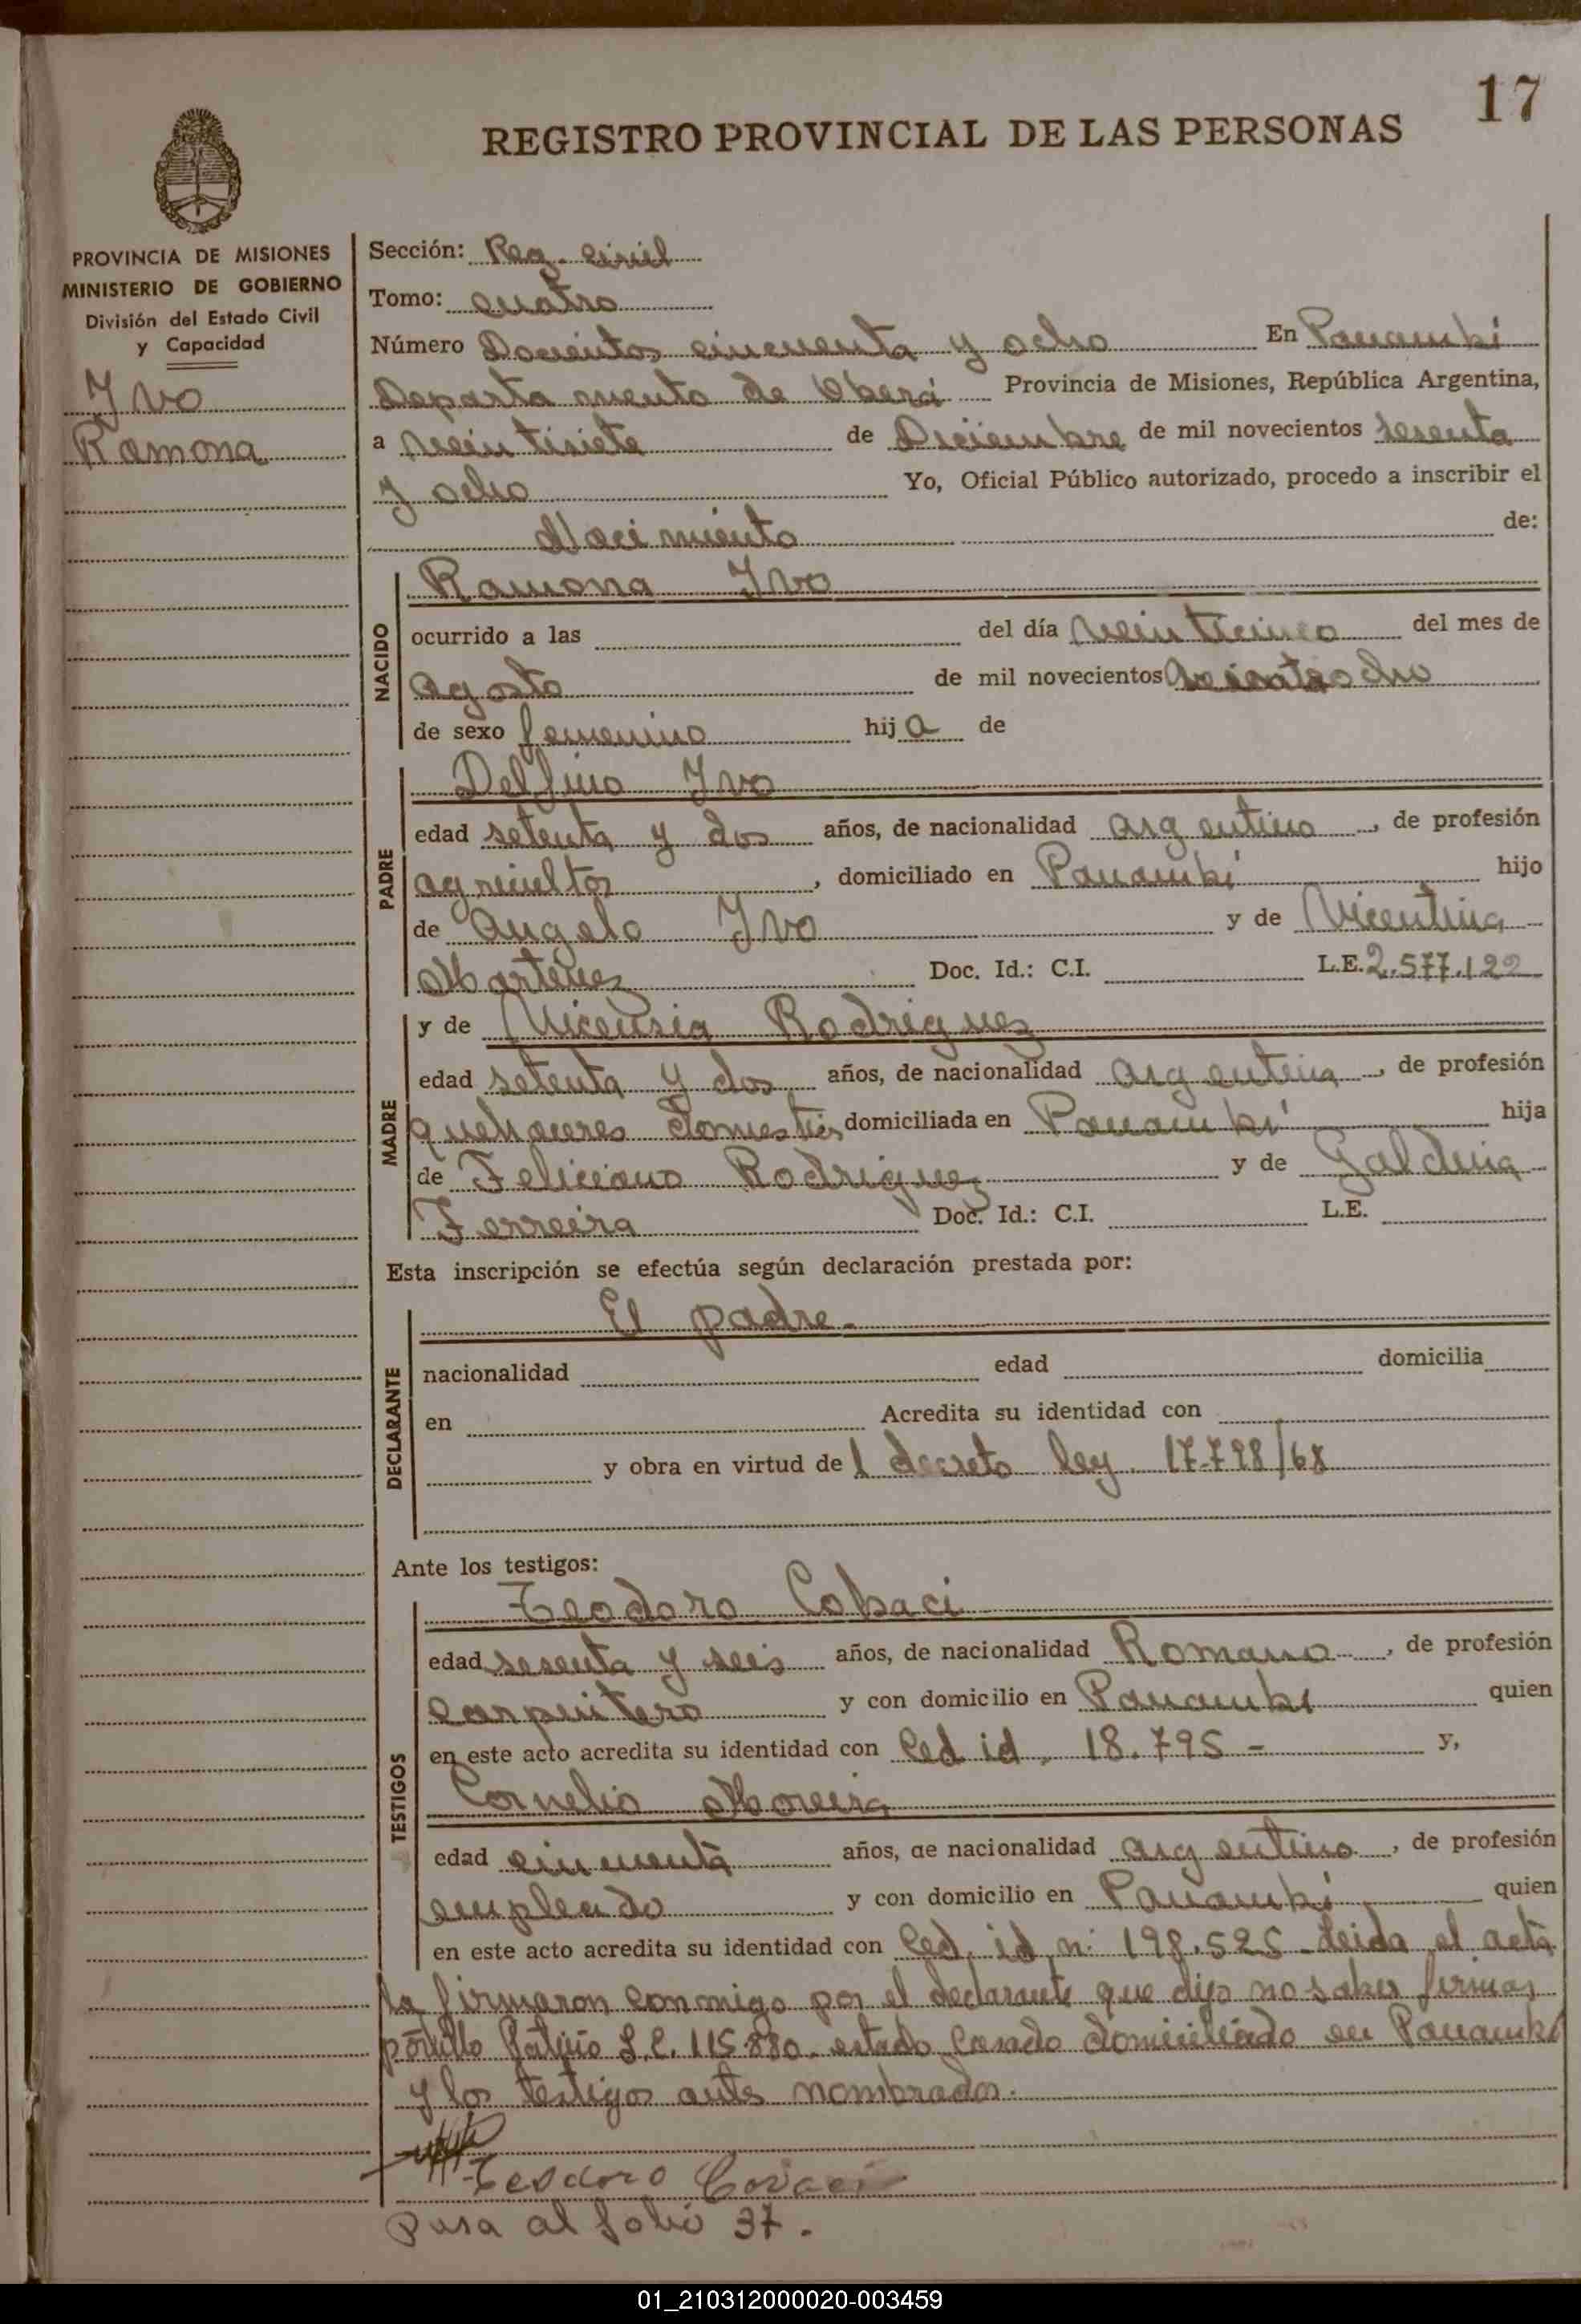 17
REGISTRO PROVINCIAL DE LAS PERSONAS
PROVINCIA DE MISIONES
MINISTERIO DE GOBIERNO
División del Estado Civil
y Capacidad
Yvo
Ramona
Sección: Reg. civil
Tomo: cuatro
Número Docientos cincuenta y ocho En Panambí
Departamento de Oberá Provincia de Misiones, República Argentina,
a veintisiete de Diciembre de mil novecientos sesenta
y ocho Yo, Oficial Público autorizado, procedo a inscribir el
Nacimiento de:
NACIDO
Ramona Yvo
ocurrido a las del día veinticinco del mes de
agosto de mil novecientos
de sexo femenino hija de
PADRE
Delfino Yvo
edad setenta y dos años, de nacionalidad argentino, de profesión
agricultor, domiciliado en Panambí hijo
de Angelo Yvo y de Vicentina
Martinez Doc. Id.: C.I. L.E. 2.577.122
MADRE
y de Vicensia Rodriguez
edad setenta y dos años, de nacionalidad argentina, de profesión
quehaceres domiciliada en Panambí hija
de Feliciano Rodriguez y de Galdina
Ferreira Doc. Id.: C.I. L.E.
Esta inscripción se efectúa según declaración prestada por:
DECLARANTE
El padre.
nacionalidad edad domicilia
en Acredita su identidad con
y obra en virtud del decreto ley 17.798/68
Ante los testigos:
TESTIGOS
Teodoro Cobaci
edad sesenta y seis años, de nacionalidad Romano, de profesión
carpintero y con domicilio en Panambí quien
en este acto acredita su identidad con Ced id. 18.795 - y,
Cornelio Moreira
edad cincuenta años, de nacionalidad argentino, de profesión
empleado y con domicilio en Panambí quien
en este acto acredita su identidad con Ced. id. n: 198.525 Leida el acta
la firmaron conmigo por el declarante que dijo no saber firmar
portillo 115.880. estado Casado domiciliado en Panambí
y los testigos antes nombrados.
Teodoro Covaci
Pasa al folio 37.
01_210312000020-003459